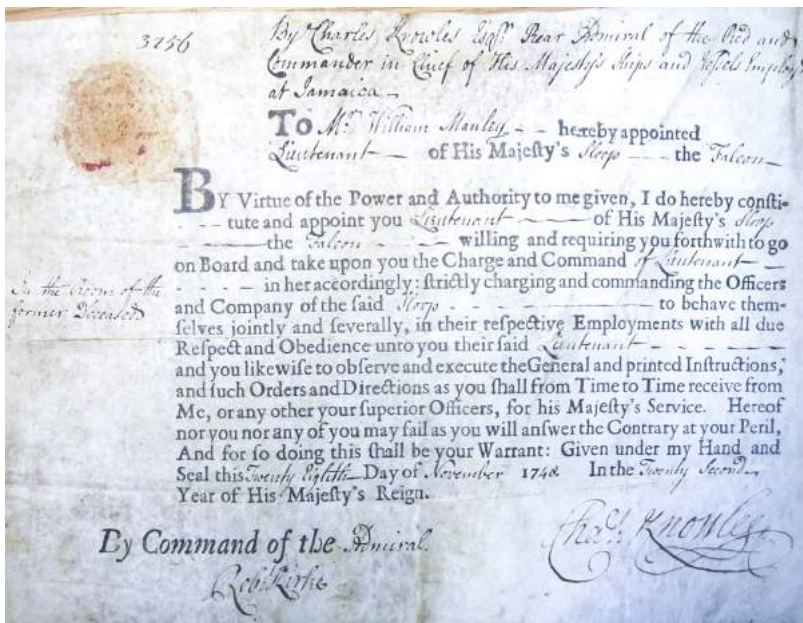 3756
By Charles Knowles Esqr. Rear Admiral of the Red and
Commander in Chief of His Majesty's Ships and Vessels Employ'd
at Jamaica -
To Mr. William Manley - - hereby appointed
Lieutenant - of His Majeſty's Sloop - the Falcon -
BY Virtue of the Power and Authority to me given, I do hereby conſti-
- - - tute and appoint you Lieutenant - of His Majeſty's Sloop
- the Falcon - - - willing and requiring you forthwith to go
on Board and take upon you the Charge and Command of Lieutenant -
- - - - in her accordingly: ſtrictly charging and commanding the Officers
In the Room of the
former Deceased
and Company of the ſaid Sloop - - - to behave them-
ſelves jointly and ſeverally, in their reſpective Employments with all due
Reſpect and Obedience unto you their ſaid Lieutenant - - -
and you likewiſe to obſerve and execute the General and printed Inſtructions,
and ſuch Orders and Directions as you ſhall from Time to Time receive from
Me, or any other your ſuperior Officers, for his Majeſty's Service. Hereof
nor you nor any of you may fail as you will anſwer the Contrary at your Peril,
And for ſo doing this ſhall be your Warrant: Given under my Hand and
Seal this Twenty Eighth Day of November 1748 In the Twenty Second
Year of His Majeſty's Reign.
Chas. Knowles
By Command of the Admiral.
Robt. Kirke